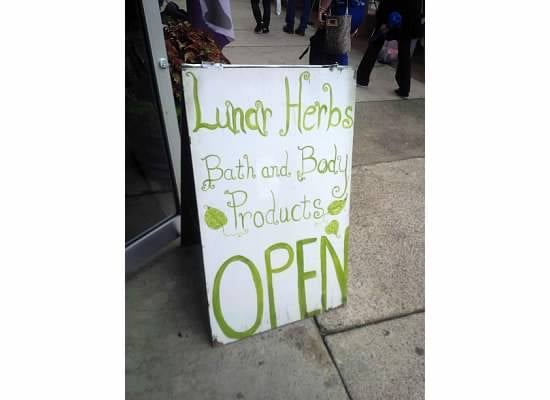 Lunar Herbs
Bath and Body
Products
OPEN